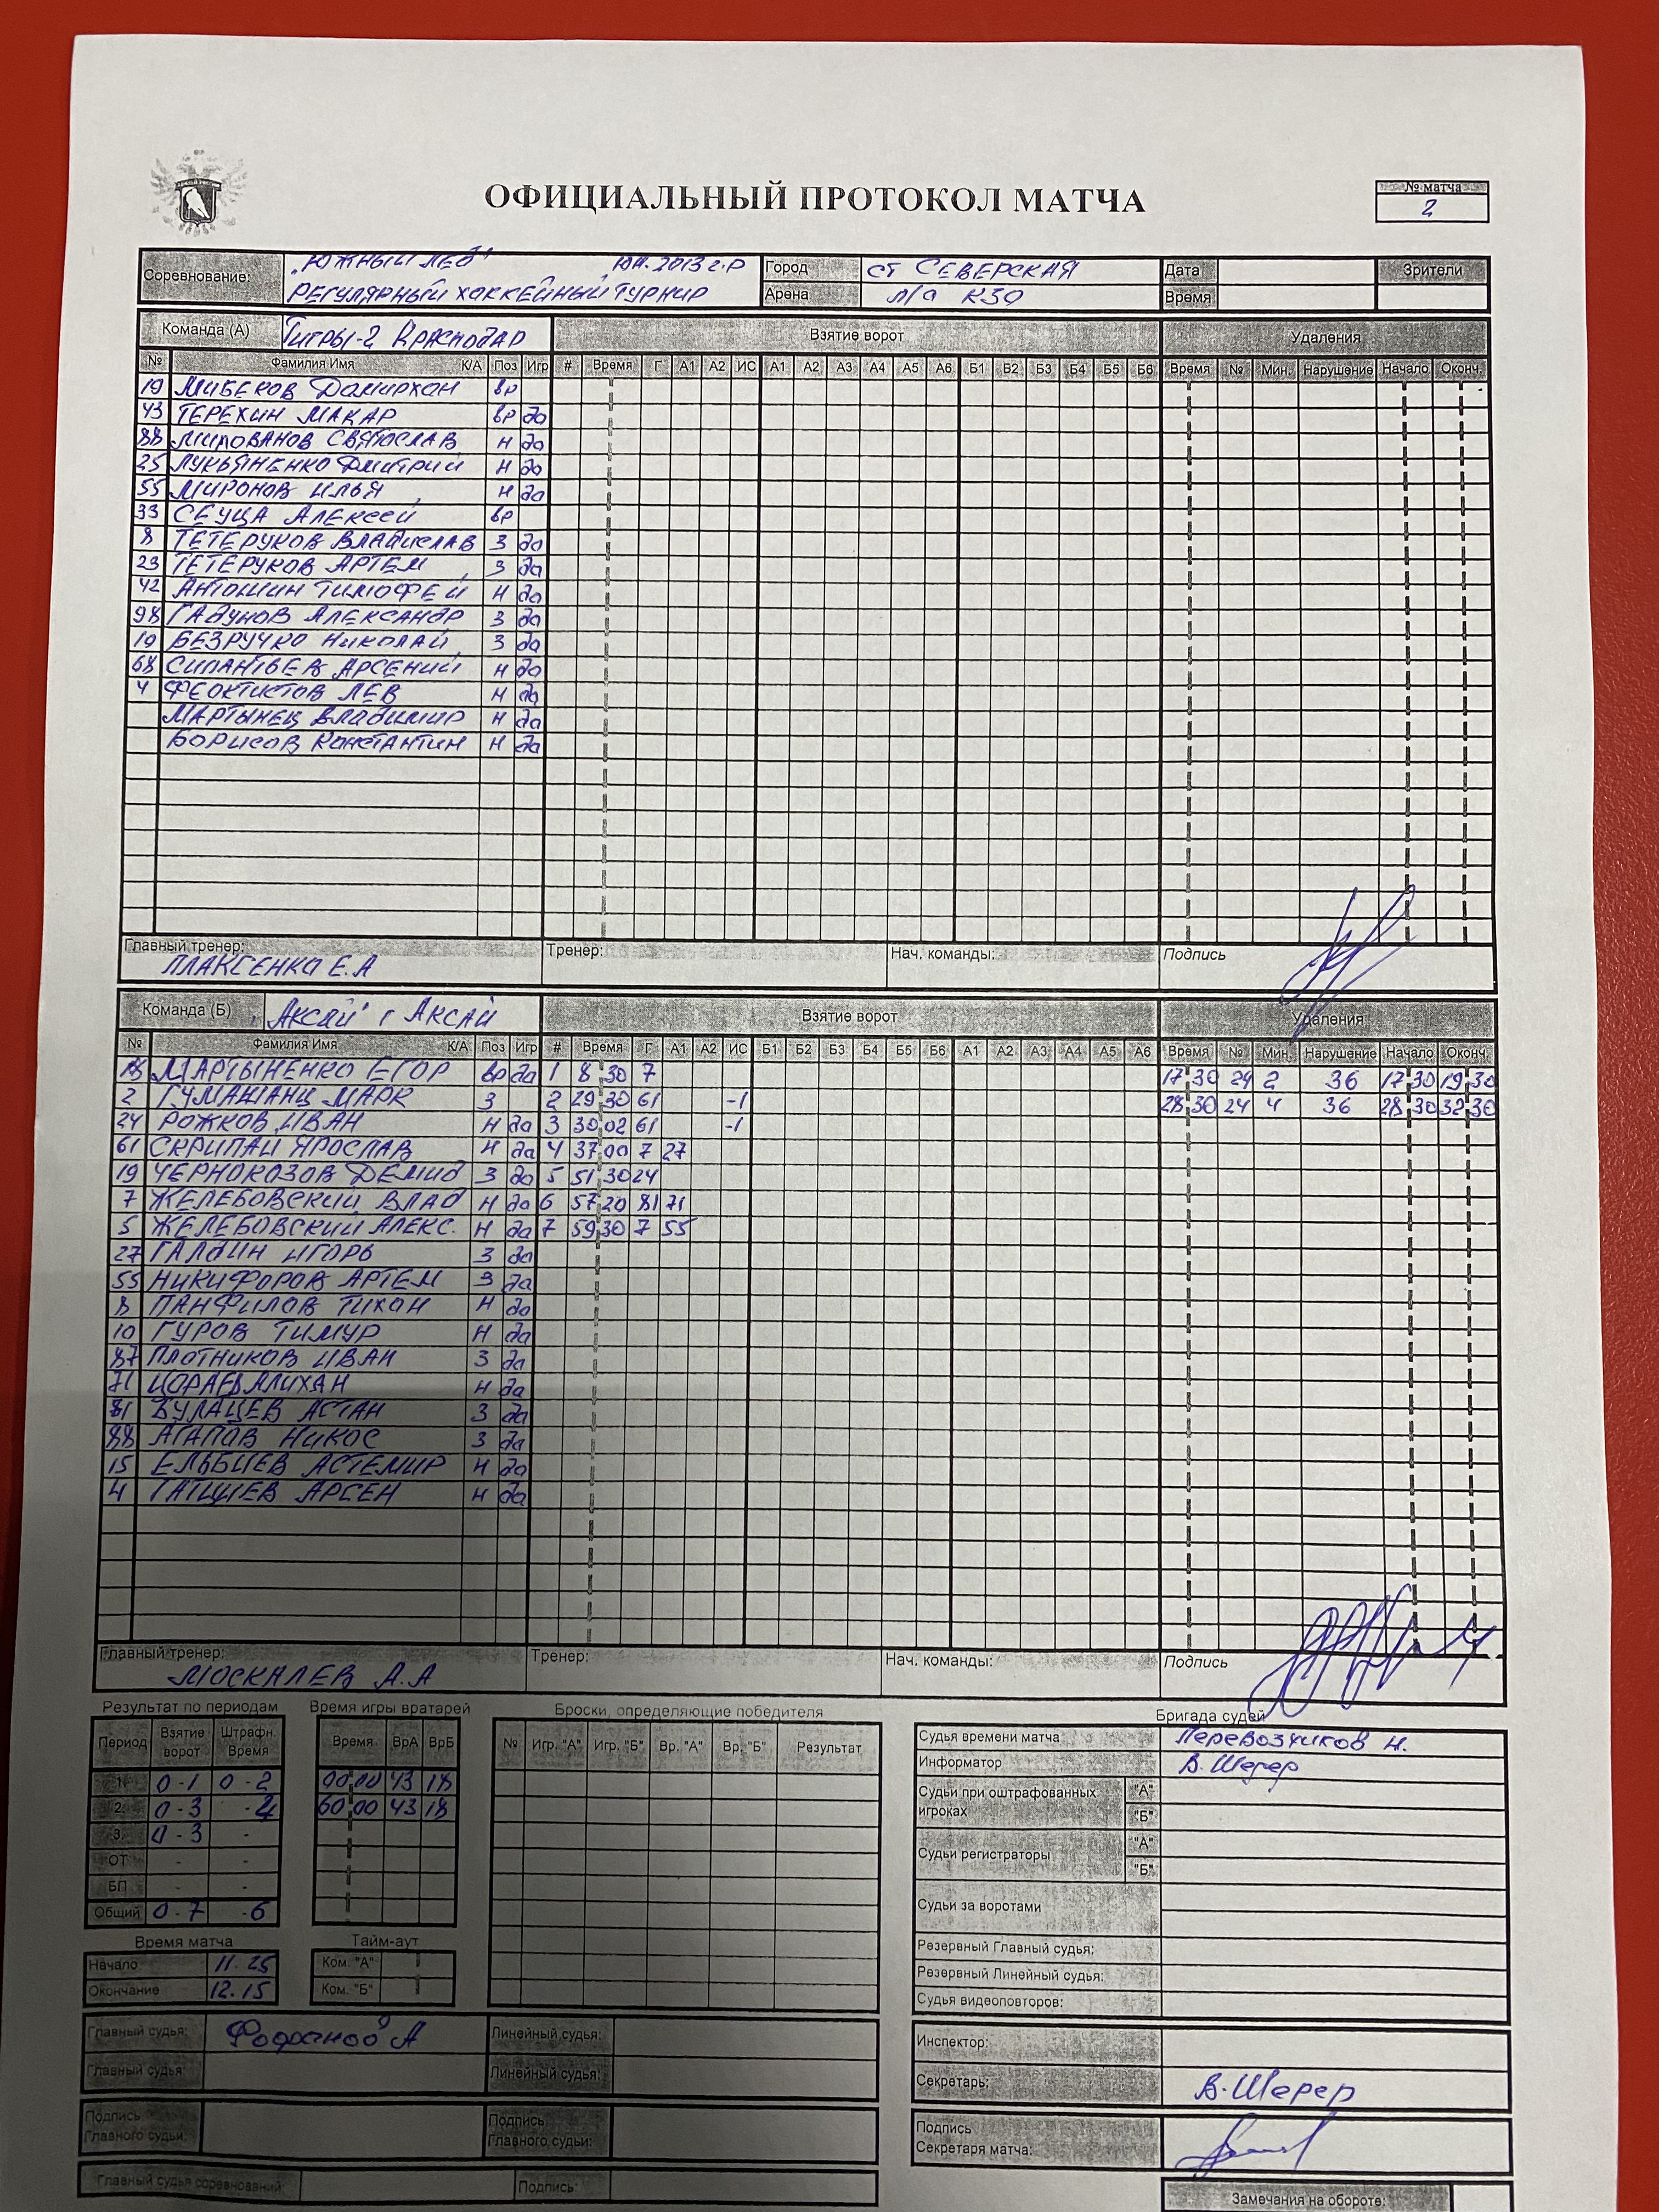 ОФИЦИАЛЬНЫЙ ПРОТОКОЛ МАТЧА
№ матча
2
Соревнование: "ЮЖНЫЙ ЛЕД" ЮН. 2013 г.Р
РЕГУЛЯРНЫЙ ХОККЕЙНЫЙ ТУРНИР
Город ст СЕВЕРСКАЯ Дата Зрители
Арена л/а Время
Команда (А) Тигры-2 Краснодар Взятие ворот Удаления
№ Фамилия Имя К/А Поз Игр # Время Г А1 А2 ИС А1 А2 А3 А4 А5 А6 Б1 Б2 Б3 Б4 Б5 Б6 Время № Мин. Нарушение Начало Оконч.
19 МИБЕКОВ Дамирхан вр
43 ТЕРЕХИН МАКАР вр да
88 МИЛОВАНОВ СВЯТОСЛАВ н да
25 ЛУКЬЯНЕНКО Дмитрий н да
55 МИРОНОВ ИЛЬЯ н да
33 СЕУЦА АЛЕКСЕЙ вр
8 ТЕТЕРУКОВ ВЛАДИСЛАВ З да
23 ТЕТЕРУКОВ АРТЕМ З да
42 АНТОШИН ТИМОФЕЙ н да
98 ГАДУНОВ АЛЕКСАНДР З да
10 БЕЗРУЧКО НИКОЛАЙ З да
68 СИЛАНТЬЕВ АРСЕНИЙ н да
4 ФЕОКТИСТОВ ЛЕВ н да
МАРТЫНЕЦ ВЛАДИМИР н да
БОРИСОВ КОНСТАНТИН н да
Главный тренер: ПЛАКСЕНКО Е.А Тренер: Нач. команды: Подпись
Команда (Б) "Аксай" г Аксай Взятие ворот Удаления
№ Фамилия Имя К/А Поз Игр # Время Г А1 А2 ИС Б1 Б2 Б3 Б4 Б5 Б6 А1 А2 А3 А4 А5 А6 Время № Мин. Нарушение Начало Оконч.
18 МАРТЫНЕНКО ЕГОР вр да 1 8 30 7 17 30 24 2 36 17 30 19 30
2 ГУМАШАНЦ МАРК З 2 29 30 61 -1 28 30 24 4 36 28 30 32 30
24 РОЖКОВ ИВАН н да 3 30 02 61 -1
61 СКРИПАЙ ЯРОСЛАВ н да 4 37 00 7 27
19 ЧЕРНОКОЗОВ ДЕМИД З да 5 51 30 24
7 ЖЕЛЕБОВСКИЙ ВЛАД н да 6 57 20 81 71
5 ЖЕЛЕБОВСКИЙ АЛЕКС. н да 7 59 30 7 55
27 ГАЛДИН ИГОРЬ З да
55 НИКИФОРОВ АРТЕМ З да
8 ПАНФИЛОВ ТИХОН н да
10 ГУРОВ ТИМУР н да
87 ПЛОТНИКОВ ИВАН З да
71 ЦОРАЕВ АЛИХАН н да
81 БУЛАЦЕВ АСТАН З да
88 АГАПОВ НИКОС З да
15 ЕЛЬБИЕВ АСТЕМИР н да
4 ТАТЦИЕВ АРСЕН н да
Главный тренер: МОСКАЛЕВ А.А Тренер: Нач. команды: Подпись
Результат по периодам Время игры вратарей Броски, определяющие победителя Бригада судей
Период Взятие ворот Штрафн. Время
1. 0-1 0-2
2. 0-3 -4
3. 0-3 -
ОТ - -
БП - -
Общий 0-7 -6
Время ВрА ВрБ
00 00 43 18
60 00 43 18
№ Игр. "А" Игр. "Б" Вр. "А" Вр. "Б" Результат
Судья времени матча Перевозчиков Н.
Информатор В. Шерер
Судьи при оштрафованных игроках "А" "Б"
Судьи регистраторы "А" "Б"
Судьи за воротами
Резервный Главный судья:
Резервный Линейный судья:
Судья видеоповторов:
Время матча
Начало 11.25
Окончание 12.15
Тайм-аут
Ком. "А"
Ком. "Б"
Главный судья: А Линейный судья:
Главный судья: Линейный судья:
Подпись Главного судьи: Подпись Главного судьи:
Главный судья соревнований: Подпись:
Инспектор:
Секретарь: В. Шерер
Подпись Секретаря матча:
Замечания на обороте: